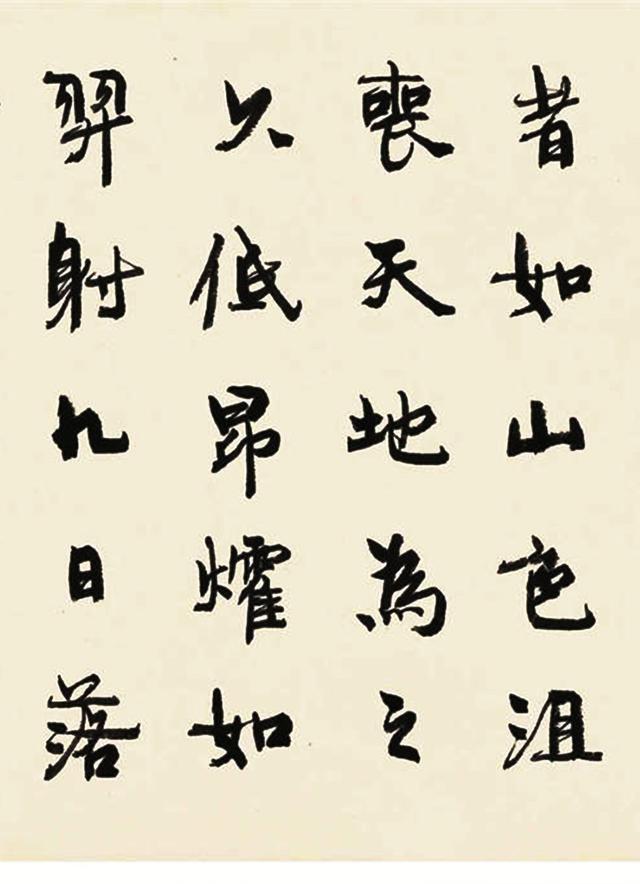 者如山色沮
喪天地為之
久低昂㸌如
羿射九日落